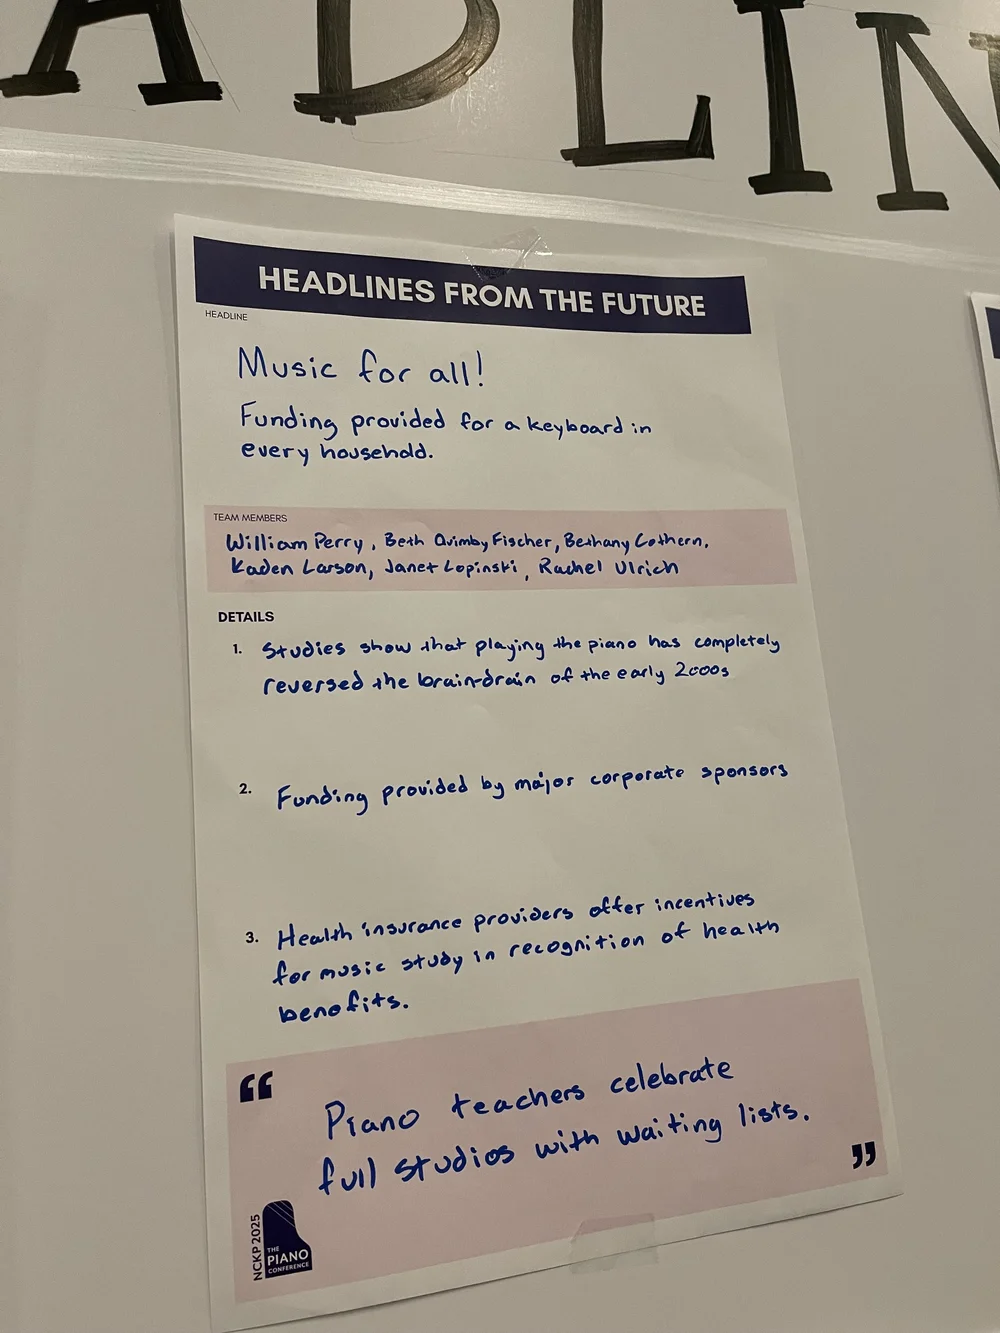 ADLIN
HEADLINES FROM THE FUTURE
HEADLINE
Music for all!
Funding provided for a keyboard in
every household.
TEAM MEMBERS
William Perry, Beth Quimby Fischer, Bethany Cothern,
Kaden Larson, Janet Lopinski, Rachel Ulrich
DETAILS
1. Studies show that playing the piano has completely
reversed the brain-drain of the early 2000s
2. Funding provided by major corporate sponsors
3. Health insurance providers offer incentives
for music study in recognition of health
benefits.
“
Piano teachers celebrate
full studios with waiting lists.
”
NCKP 2025
THE
PIANO
CONFERENCE